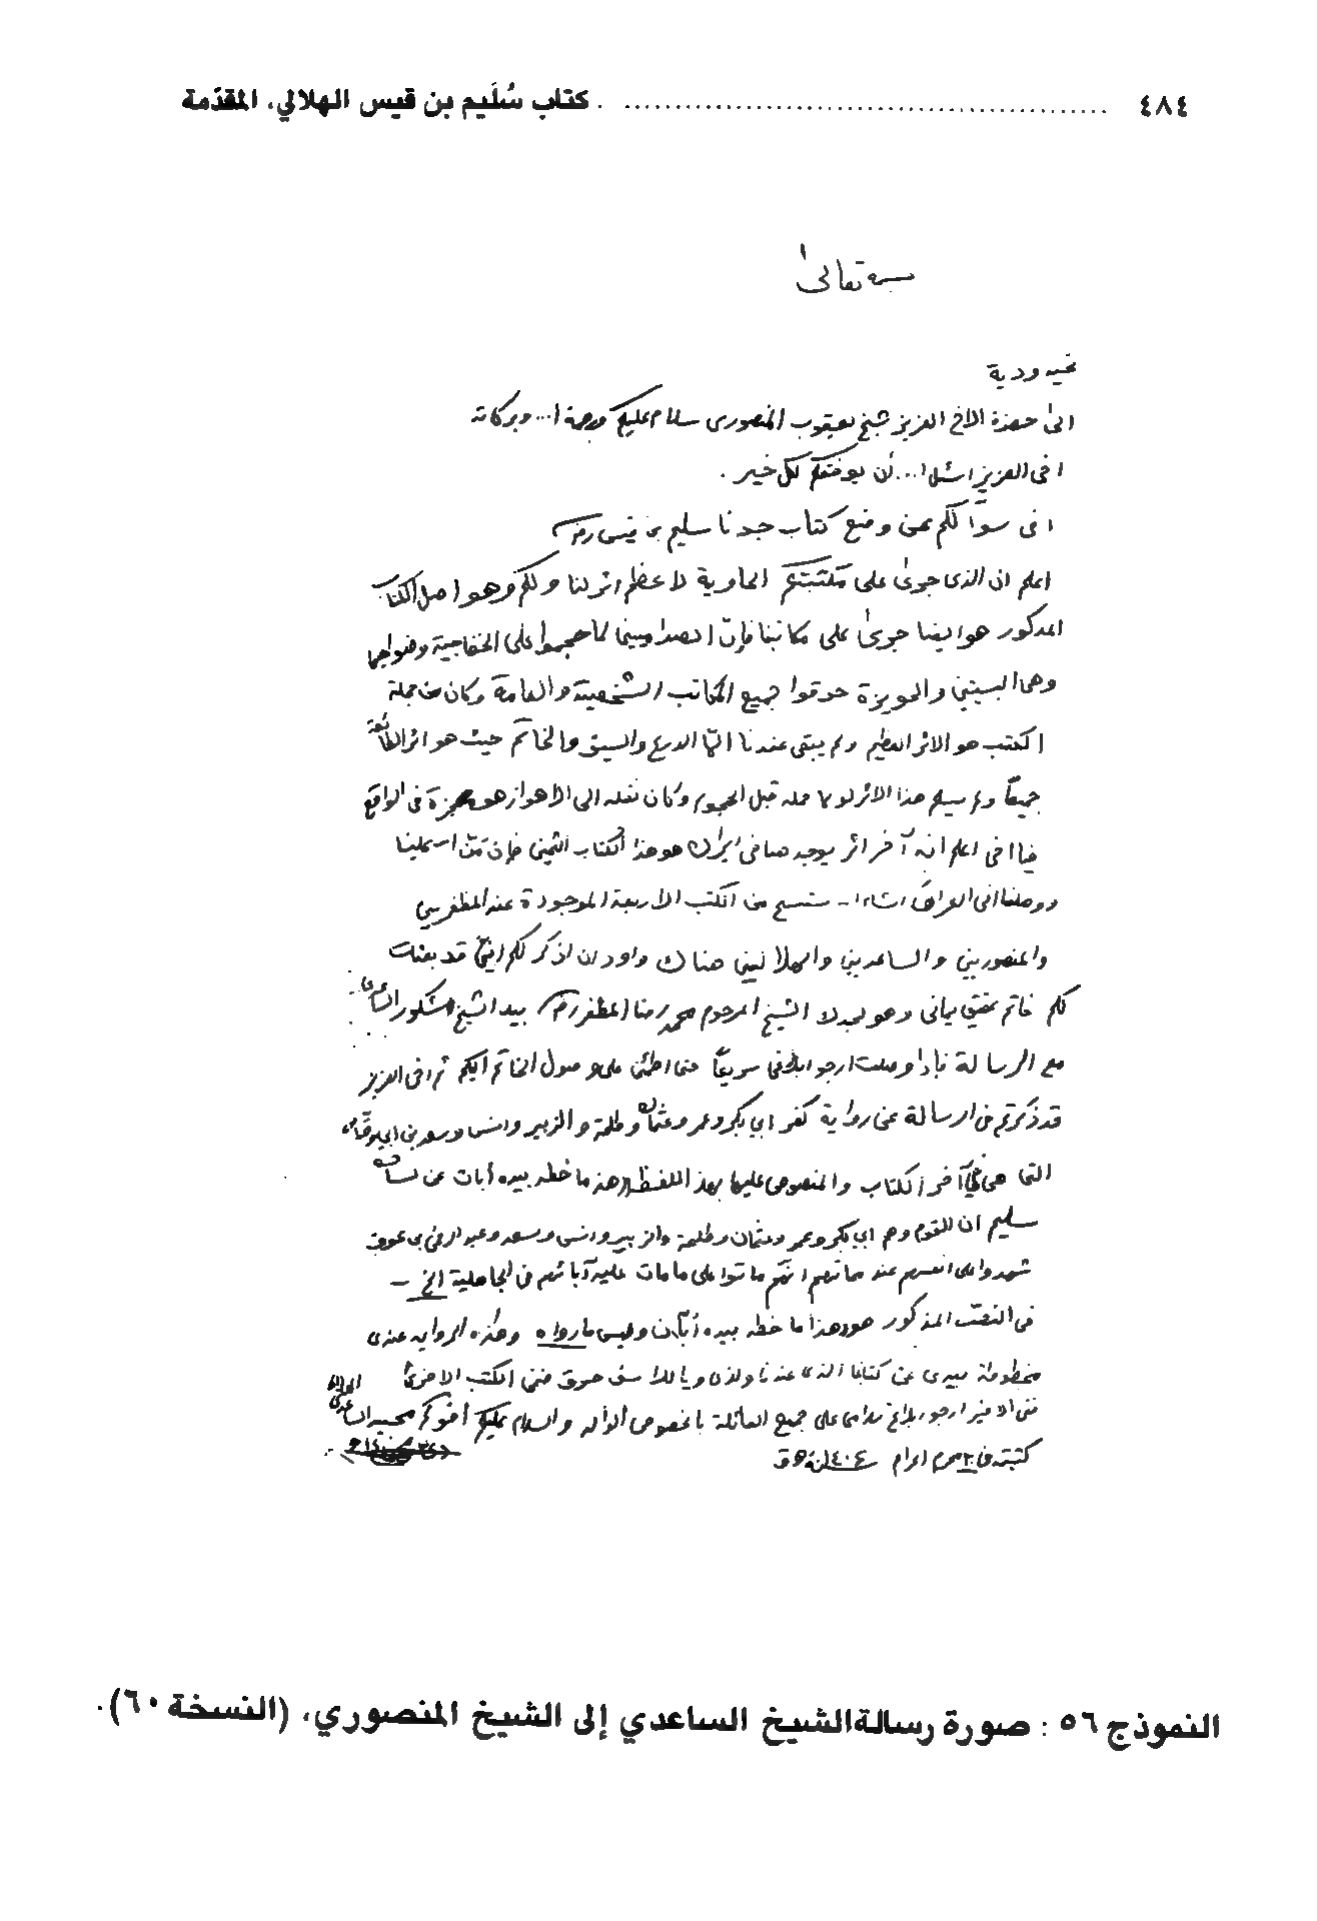 ٤٨٤ ........................................ كتاب سُلَيم بن قيس الهلالي، المقدّمة
بسمه تعالىٰ
تحيه ودية
الىٰ حضرة الاخ العزيز شيخ يعقوب المنصوري سلام عليكم ورحمة ا... وبركاته
اخي العزيز اسئل ا... أن يوفقكم لكل خير .
اخي سؤآلكم عن وضع كتاب جدنا سليم بن قيس رض
اعلم ان الذي جرىٰ على مكتبتكم الحاوية لاعظم اثر لنا ولكم وهو اصل الكتاب
المذكور هو ايضا جرىٰ على مكاتبنا فإنّ الصداميين لما هجموا على الخفاجية وضواحيها
وهي البسيتين والحويزة حرقوا جميع المكاتب الشخصية والعامة وكان من جملة
الكتب هو الاثر العظيم ولم يبقى عندنا الّا الدرع والسيف والخاتم حيث هو اثر الطائفة
جميعاً ولم يسلم هذا الاثر لولا حمله قبل الهجوم وكان نقله الى الاهواز هو معجزة في الواقع
فيا اخي اعلم انه آخر اثر يوجد منا في ايران هو هذا الكتاب الثمين فإن منّ ا... علينا
ووصلنا الى العراق انشاء ا... ننسخ من الكتب الاربعة الموجودة عند المظفريين
والمنصوريين والساعديين والهلاليين هناك واود ان اذكر لكم انيّ قد بعثت
لكم خاتم عقيق يماني وهو لجدك الشيخ المرحوم محمد رضا المظفر رض بيد الشيخ شكور الساعدي
مع الرسالة فإذا وصلت ارجو ابلاغي سريعاً حتى اطمئن على وصول الخاتم اليكم ثم اخي العزيز
قد ذكرتم في الرسالة عن رواية كفر ابي بكر وعمر وعثمان وطلحة والزبير وانس وسعد بن ابي وقّاص
التي هي في آخر الكتاب والمنصوص عليها بهذا اللفظ (هذ ما خطه بيده أبان عن لسان
سليم ان القوم وهم ابي بكر وعمر وعثمان وطلحة والزبير وانس وسعد وعبد الرحمن بن عوف
شهدوا على انفسهم عند مماتهم انهّم ماتوا على مامات عليه آبائهم في الجاهلية الخ -
في النصّ المذكور هو هذا ما خطه بيده أبّان وليس ما رواه وهذه الروايه عندي
مخطوطة بيدي عن كتابنا الذي عندنا ولكن ويا للاسف حرق ضمن الكتب الاخرىٰ
ففي الاخير ارجو ابلاغ سلامي على جميع العائلة بالخصوص الوالد والسلام عليكم أخوكم محمد الساعدي الهلالي
كتبته في ٢٠ محرم الحرام سنة ١٤٠٤ هـ ق
النموذج ٥٦ : صورة رسالة الشيخ الساعدي إلى الشيخ المنصوري، (النسخة ٦٠).